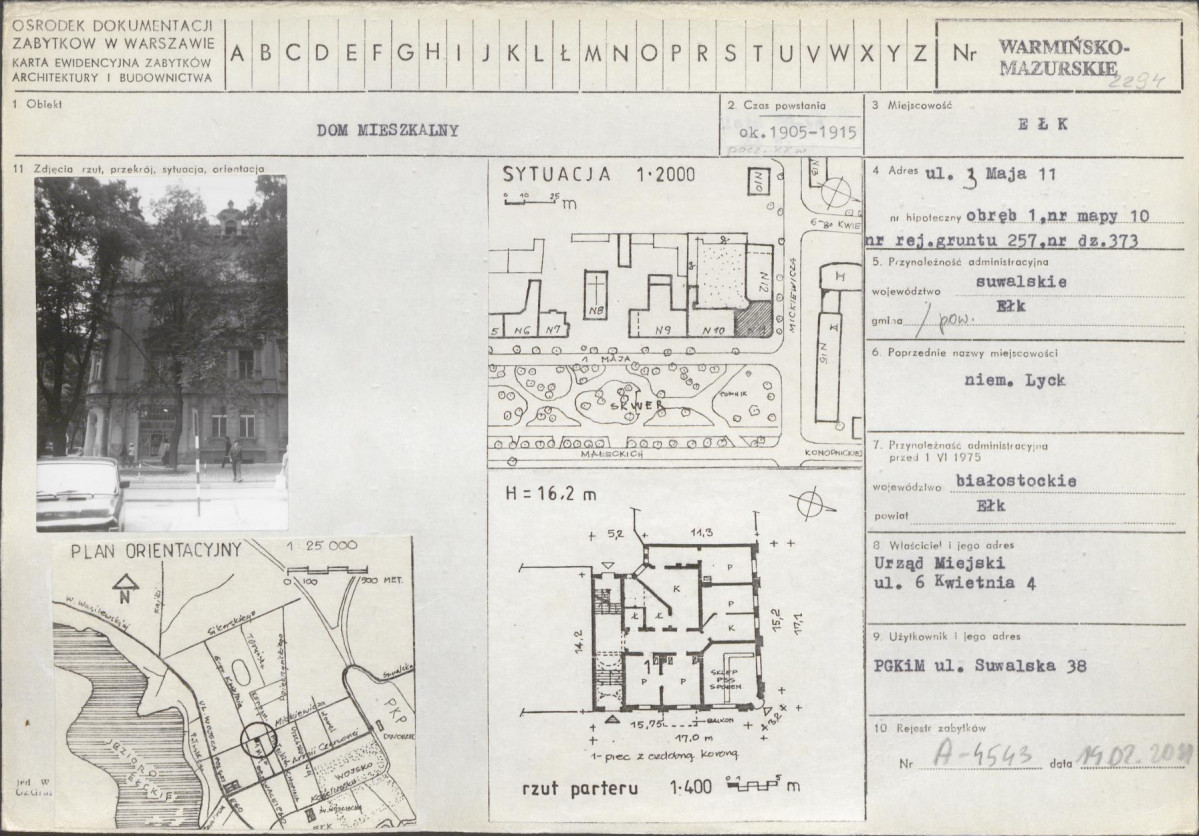 OŚRODEK DOKUMENTACJI
ZABYTKÓW W WARSZAWIE
KARTA EWIDENCYJNA ZABYTKÓW
ARCHITEKTURY I BUDOWNICTWA
A B C D E F G H I J K L Ł M N O P R S T U V W X Y Z
Nr WARMIŃSKO-
MAZURSKIE
2294
1 Obiekt
DOM MIESZKALNY
2. Czas powstania
ok.1905-1915
pocz. XX w.
3 Miejscowość
E Ł K
11 Zdjęcia rzut, przekrój, sytuacja, orientacja
SYTUACJA 1:2000
0 10 25 m
N10
N13
6-go KWIE
N12
MICKIEWICZA
H
N15
5
N6
N7
N8
N9
N10
1 MAJA
SKWER
POMNIK
MAŁECKICH
KONOPNICKIEJ
4 Adres ul. 3 Maja 11
nr hipoteczny obręb 1,nr mapy 10
nr rej.gruntu 257,nr dz.373
5. Przynależność administracyjna
województwo suwalskie
gmina / pow. Ełk
6. Poprzednie nazwy miejscowości
niem. Lyck
7. Przynależność administracyjna
przed 1 VI 1975
województwo białostockie
powiat Ełk
8 Właściciel i jego adres
Urząd Miejski
ul. 6 Kwietnia 4
9. Użytkownik i jego adres
PGKiM ul. Suwalska 38
10 Rejestr zabytków
Nr A-4543 data 19.02.2011
H = 16,2 m
5,2
11,3
P
K
P
Ł
Ł
K
14,2
15,2
17,1
1
P
P
SKLEP
PSS
SPOŁEM
15,75
BALKON
3,2
17,0 m
1-piec z ozdobną koroną
rzut parteru 1:400 0 1 5 m
PLAN ORIENTACYJNY 1:25 000
0 100 500 MET.
N
W. Wasilewskiej
Sikorskiego
Toruńska
6-go Kwietnia
Mickiewicza
Armii Czerwonej
Suwalska
PKP
DWORZEC
WOJSKO
Jezioro
Ełckie